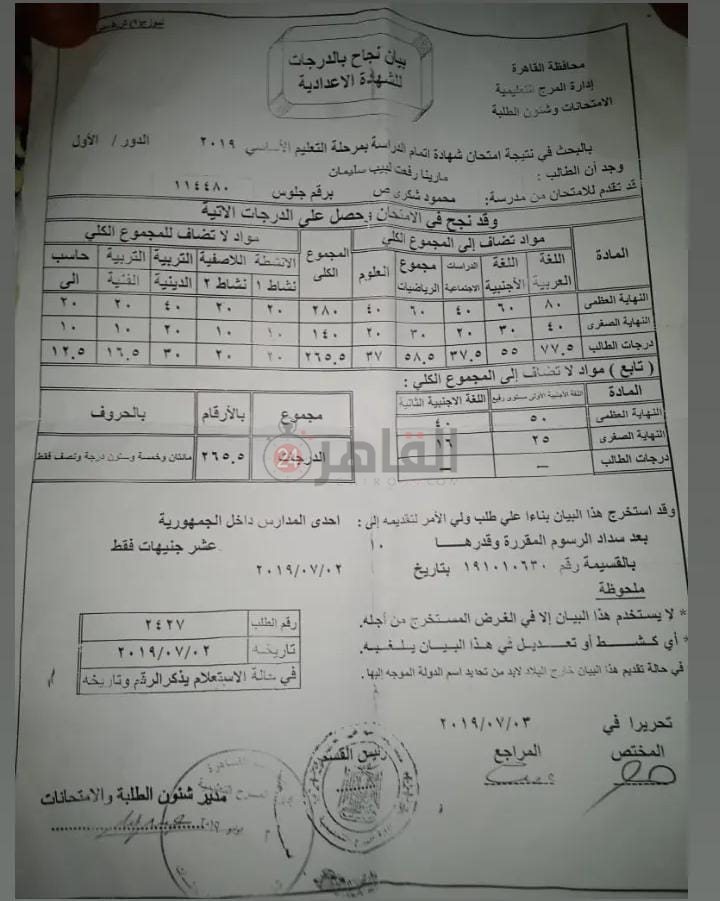 نموذج (٦) ش.هـ
محافظة القاهرة
إدارة المرج التعليمية
الامتحانات وشئون الطلبة
بيان نجاح بالدرجات
للشهادة الاعدادية
بالبحث في نتيجة امتحان شهادة اتمام الدراسة بمرحلة التعليم الأساسي ٢٠١٩ الدور / الأول
وجد أن الطالب : مارينا رفعت لبيب سليمان
قد تقدم للامتحان من مدرسة: محمود شكرى ص برقم جلوس ١١٤٤٨٠
وقد نجح في الامتحان وحصل علي الدرجات الاتية
المادة مواد تضاف إلى المجموع الكلي المجموع الكلى مواد لا تضاف للمجموع الكلي
اللغة العربية اللغة الأجنبية الدراسات الاجتماعية مجموع الرياضيات العلوم الانشطة نشاط ١ اللاصفية نشاط ٢ التربية الدينية التربية الفنية حاسب الى
النهاية العظمى ٨٠ ٦٠ ٤٠ ٦٠ ٤٠ ٢٨٠ ٢٠ ٢٠ ٤٠ ٢٠ ٢٠
النهاية الصغرى ٤٠ ٣٠ ٢٠ ٣٠ ٢٠ ١٤٠ ١٠ ١٠ ٢٠ ١٠ ١٠
درجات الطالب ٧٧.٥ ٥٥ ٣٧.٥ ٥٨.٥ ٣٧ ٢٦٥.٥ ٢٠ ٢٠ ٣٠ ١٦.٥ ١٢.٥
( تابع ) مواد لا تضاف إلى المجموع الكلي :
المادة اللغة الاجنبية الأولى مستوى رفيع اللغة الاجنبية الثانية
النهاية العظمى ٥٠ ٤٠
النهاية الصغرى ٢٥ ١٦
درجات الطالب — —
مجموع بالأرقام بالحروف
الدرجات ٢٦٥.٥ مائتان وخمسة وستون درجة ونصف فقط
القاهرة 24
وقد استخرج هذا البيان بناءا علي طلب ولي الأمر لتقديمه إلى : احدى المدارس داخل الجمهورية
بعد سداد الرسوم المقررة وقدرها ١٠ عشر جنيهات فقط
بالقسيمة رقم ١٩١٠١٠٦٣٠ بتاريخ ٢٠١٩/٠٧/٠٢
ملحوظة
* لا يستخدم هذا البيان إلا في الغرض المستخرج من أجله.
* أي كشط أو تعديل في هذا البيان يلغيه.
في حالة تقديم هذا البيان خارج البلاد لابد من تحديد اسم الدولة الموجه إليها .
رقم الطلب ٢٤٢٧
تاريخه ٢٠١٩/٠٧/٠٢
في حالة الاستعلام يذكر الرقم وتاريخه
تحريرا في ٢٠١٩/٠٧/٠٣
المختص المراجع رئيس القسم
مدير شئون الطلبة والامتحانات